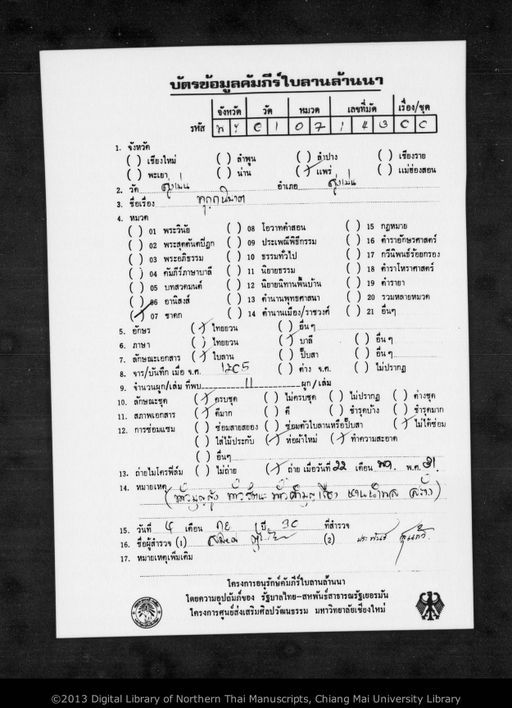 บัตรข้อมูลคัมภีร์ใบลานล้านนา
จังหวัด วัด หมวด เลขที่มัด เรื่อง/ชุด
รหัส 0 1 0 7 1 4 3 0 0
1. จังหวัด
( ) เชียงใหม่ ( ) ลำพูน ( ) ลำปาง ( ) เชียงราย
( ) พะเยา ( ) น่าน (/) แพร่ ( ) แม่ฮ่องสอน
2. วัด สูงเม่น อำเภอ สูงเม่น
3. ชื่อเรื่อง
4. หมวด
( ) 01 พระวินัย ( ) 08 โอวาทคำสอน ( ) 15 กฎหมาย
( ) 02 พระสุตตันตปิฎก ( ) 09 ประเพณีพิธีกรรม ( ) 16 ตำราอักษรศาสตร์
( ) 03 พระอภิธรรม ( ) 10 ธรรมทั่วไป ( ) 17 กวีนิพนธ์ร้อยกรอง
( ) 04 คัมภีร์ภาษาบาลี ( ) 11 นิยายธรรม ( ) 18 ตำราโหราศาสตร์
( ) 05 บทสวดมนต์ ( ) 12 นิยายนิทานพื้นบ้าน ( ) 19 ตำรายา
( ) 06 อานิสงส์ ( ) 13 ตำนานพุทธศาสนา ( ) 20 รวมหลายหมวด
(/) 07 ชาดก ( ) 14 ตำนานเมือง/ราชวงศ์ ( ) 21 อื่นๆ
5. อักษร (/) ไทยยวน ( ) อื่นๆ
6. ภาษา ( ) ไทยยวน (/) บาลี ( ) อื่นๆ
7. ลักษณะเอกสาร (/) ใบลาน ( ) ปั๊บสา ( ) อื่นๆ
8. จาร/บันทึก เมื่อ จ.ศ. 1205 ( ) ต่าง จ.ศ. ( ) ไม่ปรากฏ
9. จำนวนผูก/เล่ม ที่พบ 11 ผูก/เล่ม
10. ลักษณะชุด (/) ครบชุด ( ) ไม่ครบชุด ( ) ไม่ปรากฏ ( ) ต่างชุด
11. สภาพเอกสาร (/) ดีมาก ( ) ดี ( ) ชำรุดบ้าง ( ) ชำรุดมาก
12. การซ่อมแซม ( ) ซ่อมสายสยอง ( ) ซ่อมตัวใบลานหรือปั๊บสา (/) ไม่ได้ซ่อม
( ) ใส่ไม้ประกับ (/) ห่อผ้าใหม่ (/) ทำความสะอาด
( ) อื่นๆ
13. ถ่ายไมโครฟิล์ม ( ) ไม่ถ่าย (/) ถ่าย เมื่อวันที่ 22 เดือน พ.ศ. 31
14. หมายเหตุ
15. วันที่ 4 เดือน กย ปี 30 ที่สำรวจ
16. ชื่อผู้สำรวจ (1) (2) ประพันธ์
17. หมายเหตุเพิ่มเติม
โครงการอนุรักษ์คัมภีร์ใบลานล้านนา
โดยความอุปถัมภ์ของ รัฐบาลไทย-สหพันธ์สาธารณรัฐเยอรมัน
โครงการศูนย์ส่งเสริมศิลปวัฒนธรรม มหาวิทยาลัยเชียงใหม่
©2013 Digital Library of Northern Thai Manuscripts, Chiang Mai University Library